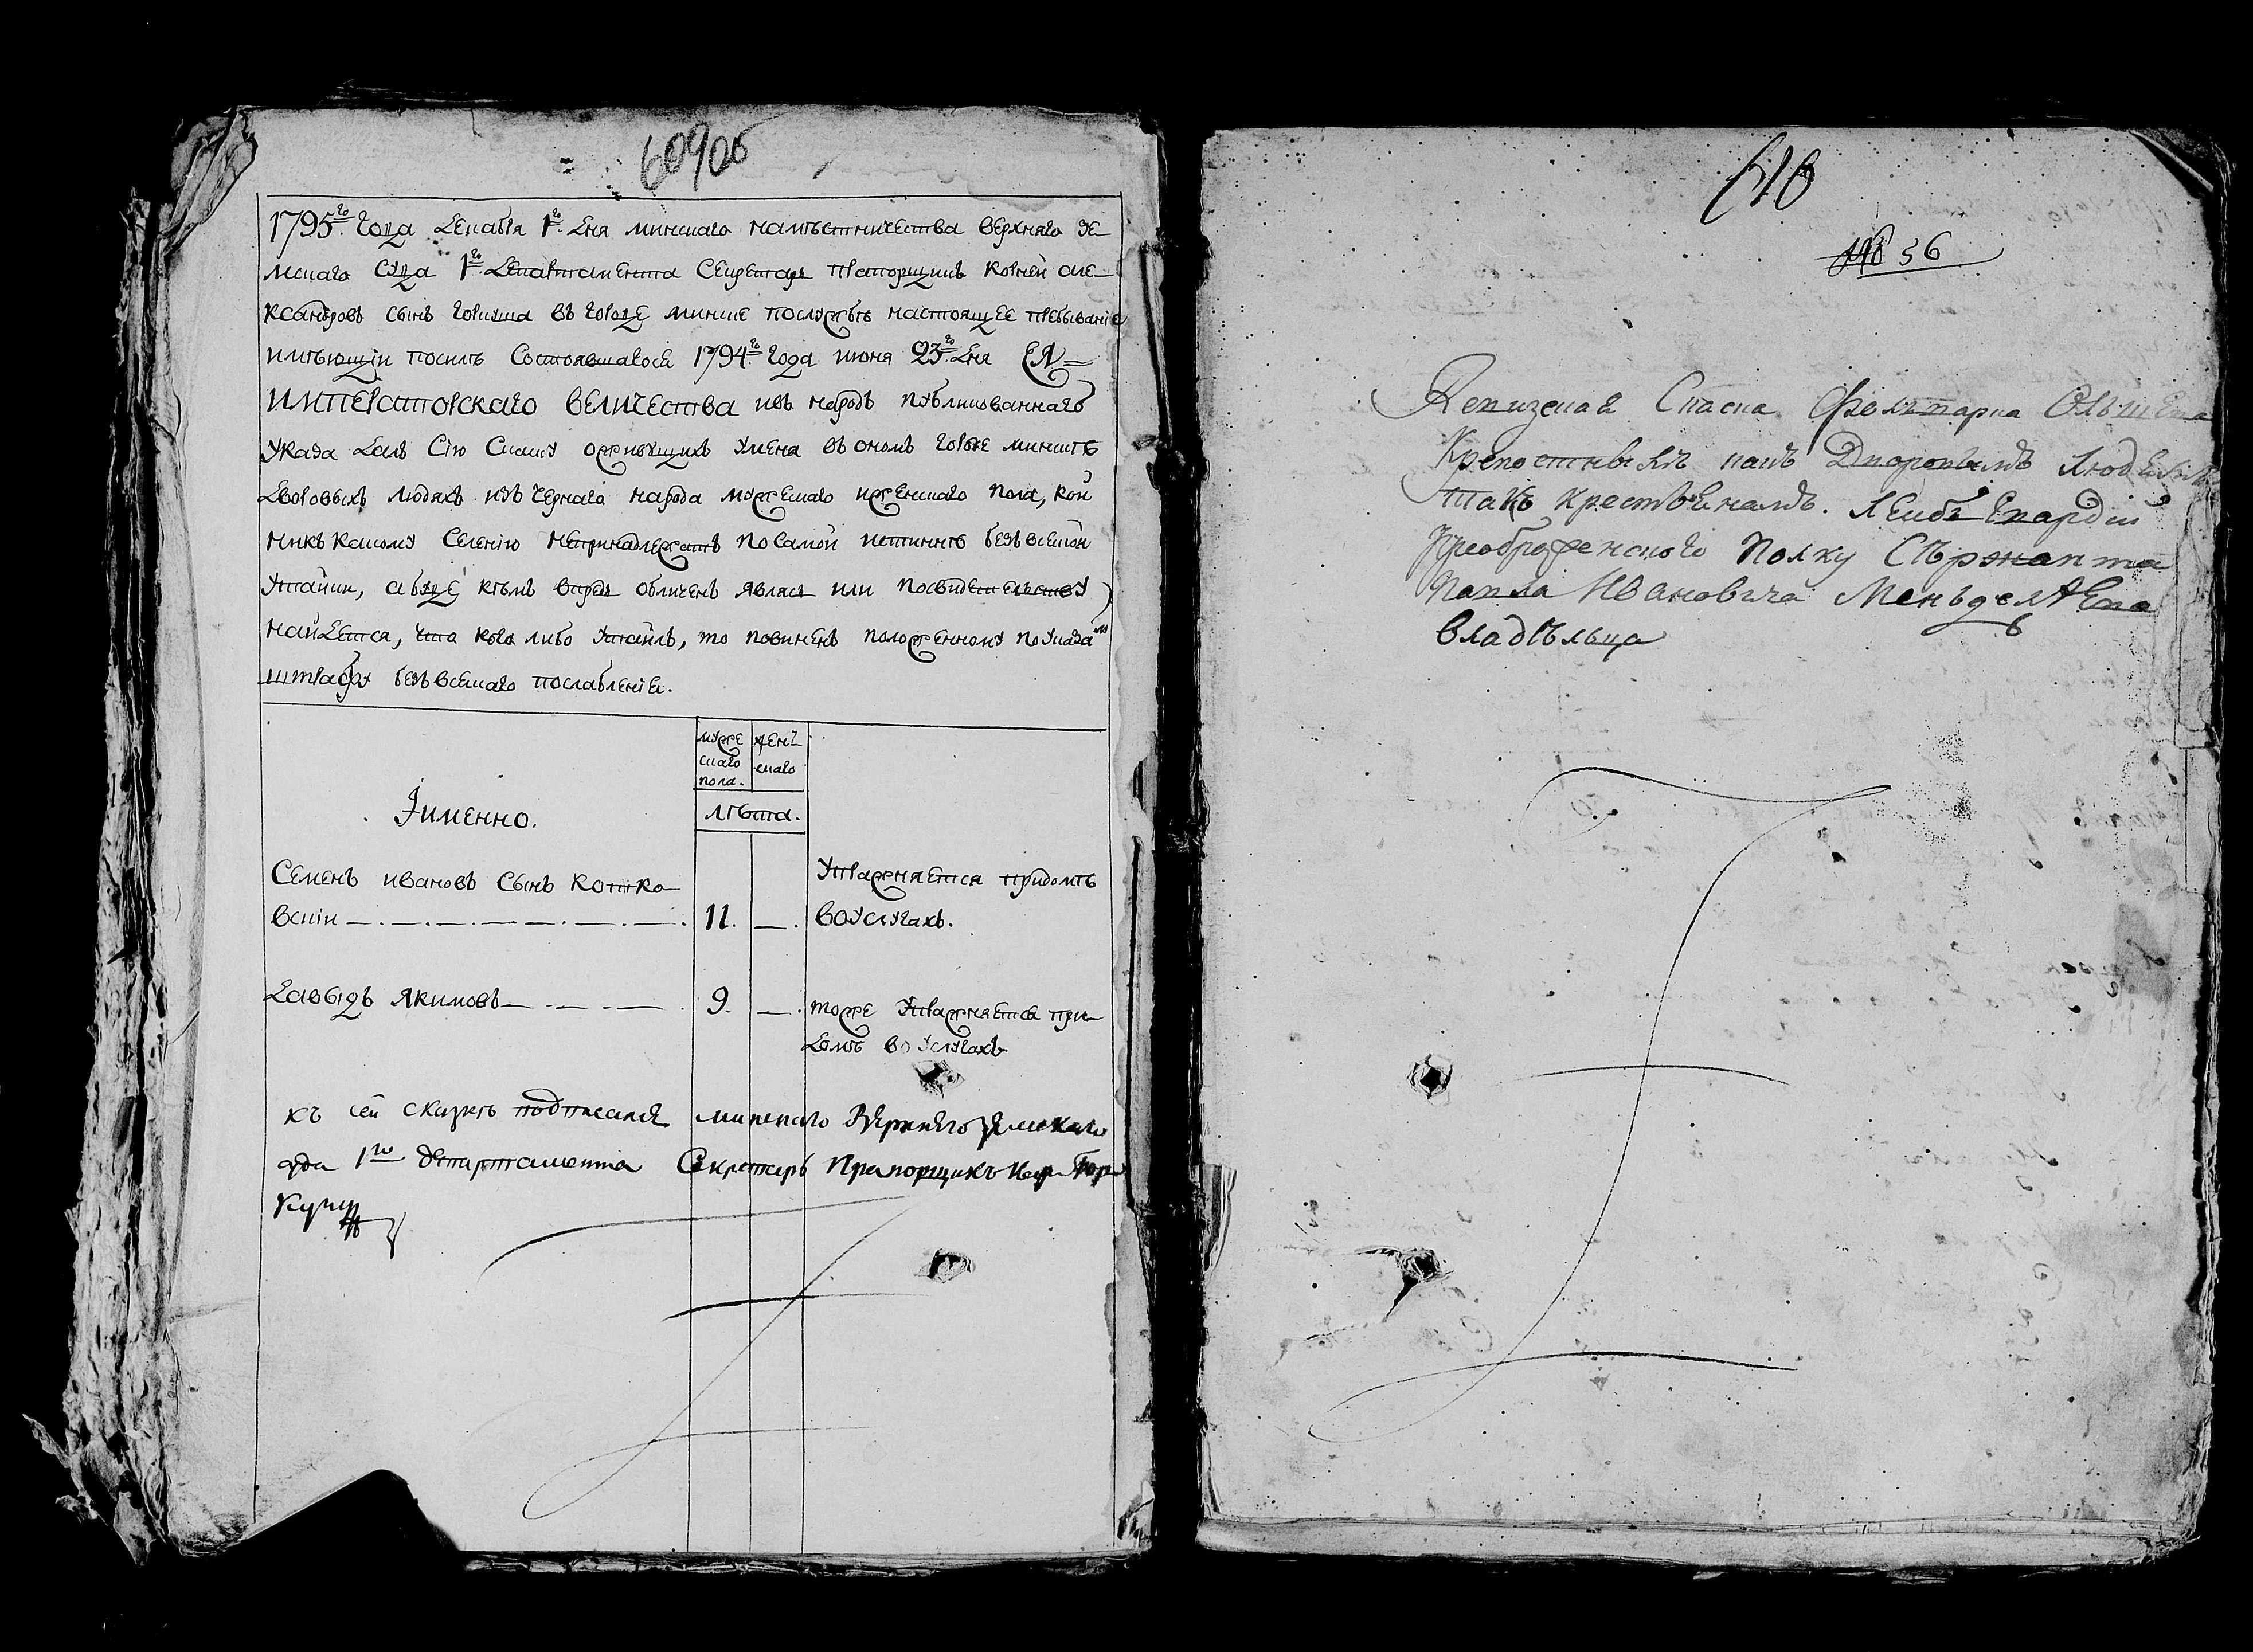 609об
1795го. Года декабря 1го. дня минскаго намѣстничества верхняго зе-
мскаго суда 1го. департамента секретарь прапорщикъ корней але-
ксандровъ сынъ горкуша въ городе минске послужбѣ настоящее пребываніе
имѣющій посилѣ состоявшагося 1794го. Года июня 23го. дня ЕЯ=
ИМПЕРАТОРСКАГО ВЕЛИЧЕСТВА изъ народъ публикованнаго
указа далъ сію сказку оживущихъ уменя въ ономъ городе минскѣ
дворовыхъ людяхъ изъ чернаго народа мужескаго иженскаго пола, кои
никъ какому селенію непринадлежатъ по самой истиннѣ безъ всякой
утайки, абуде кѣмъ впредь обличенъ явлюсь или посвидетельству
найдется, что кого либо утаилъ, то повиненъ положенному поуказамъ
штрафу безъ всякаго послабленія.
муже
скаго
пола.
жен
скаго
Iименно.
лѣта.
Семенъ ивановъ сынъ котко-
вскій — . — . — . — . — . — . 11. — .
Утражняется придомѣ
воуслугахъ.
Давыдъ якимовъ — . — . — . 9. — .
тоже утражняется при-
домѣ во услугахъ
къ сей сказкѣ подписался минскаго Верхняго земскаго
суда 1го департамента Секретарь Прапорщикъ Кор: Гор-
куша
610
№ 56
Ревизская Сказка Фольварка Ольшева
Крепостнымъ какъ Дворовымъ Людемъ
такъ крестьянамъ. Леибъ Гвардіи
Преображенского Полку Сѣржанта
Павла Ивановича Менъделѣева
владѣльца